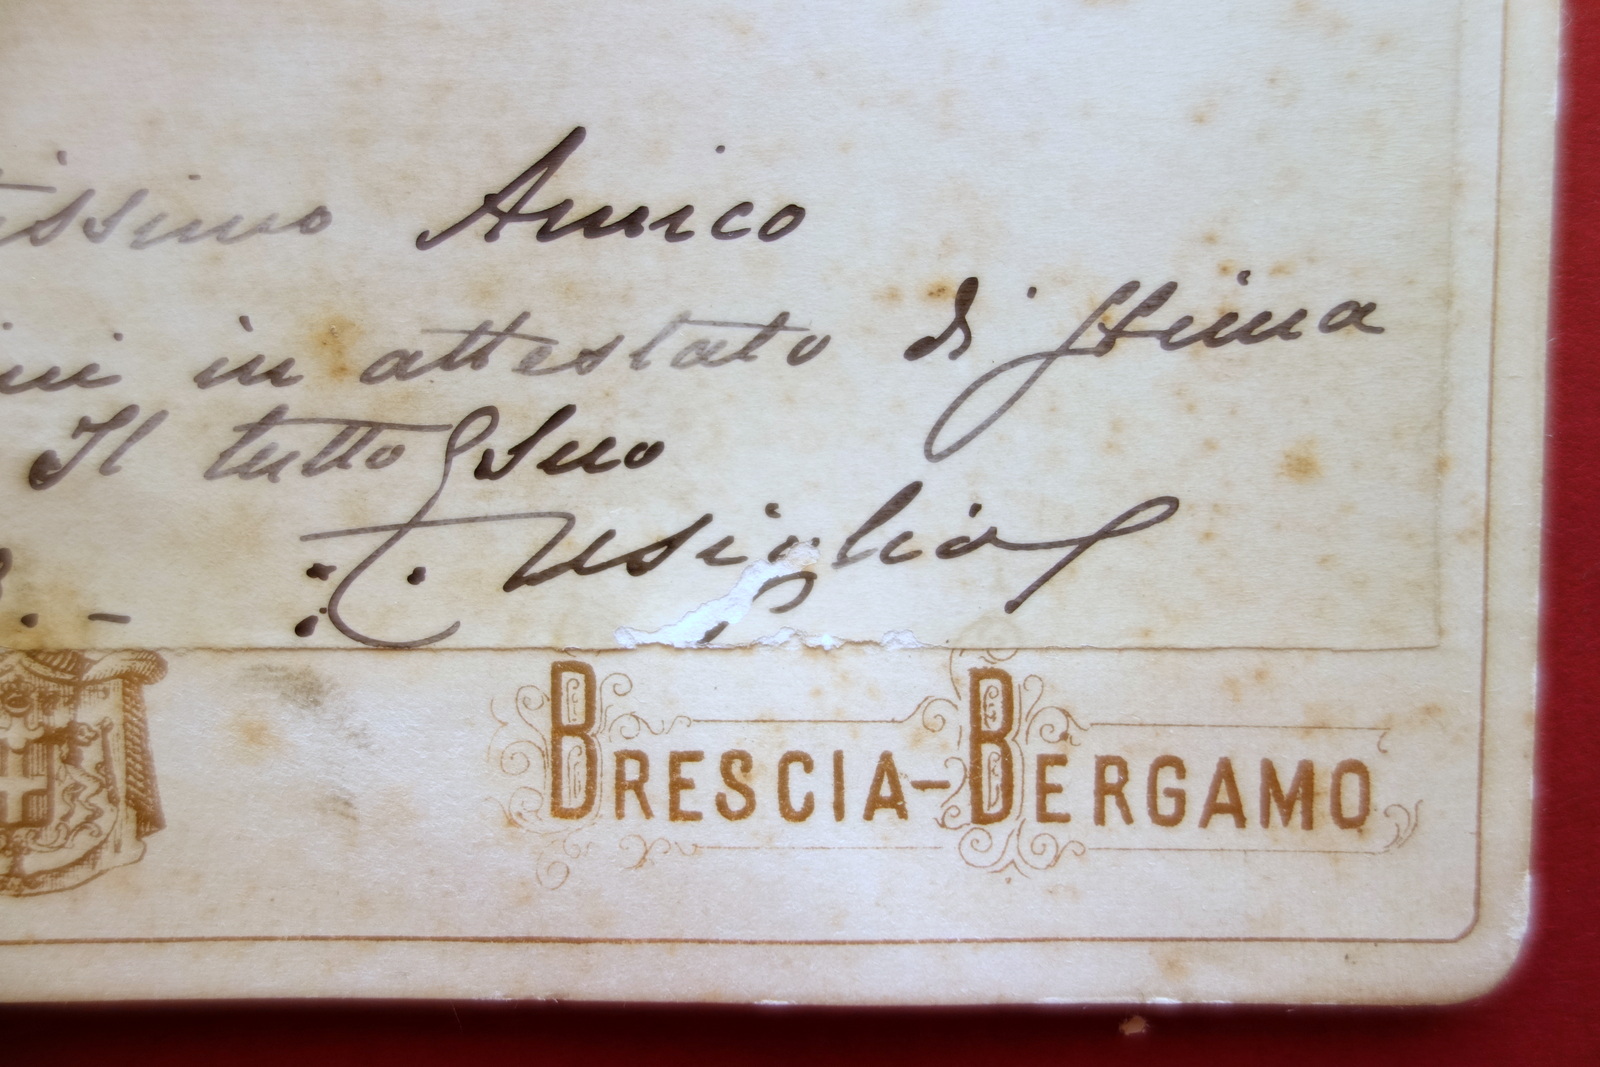 issimo Amico
in attestato di stima
Il tutto Suo
Usiglio
BRESCIA-BERGAMO